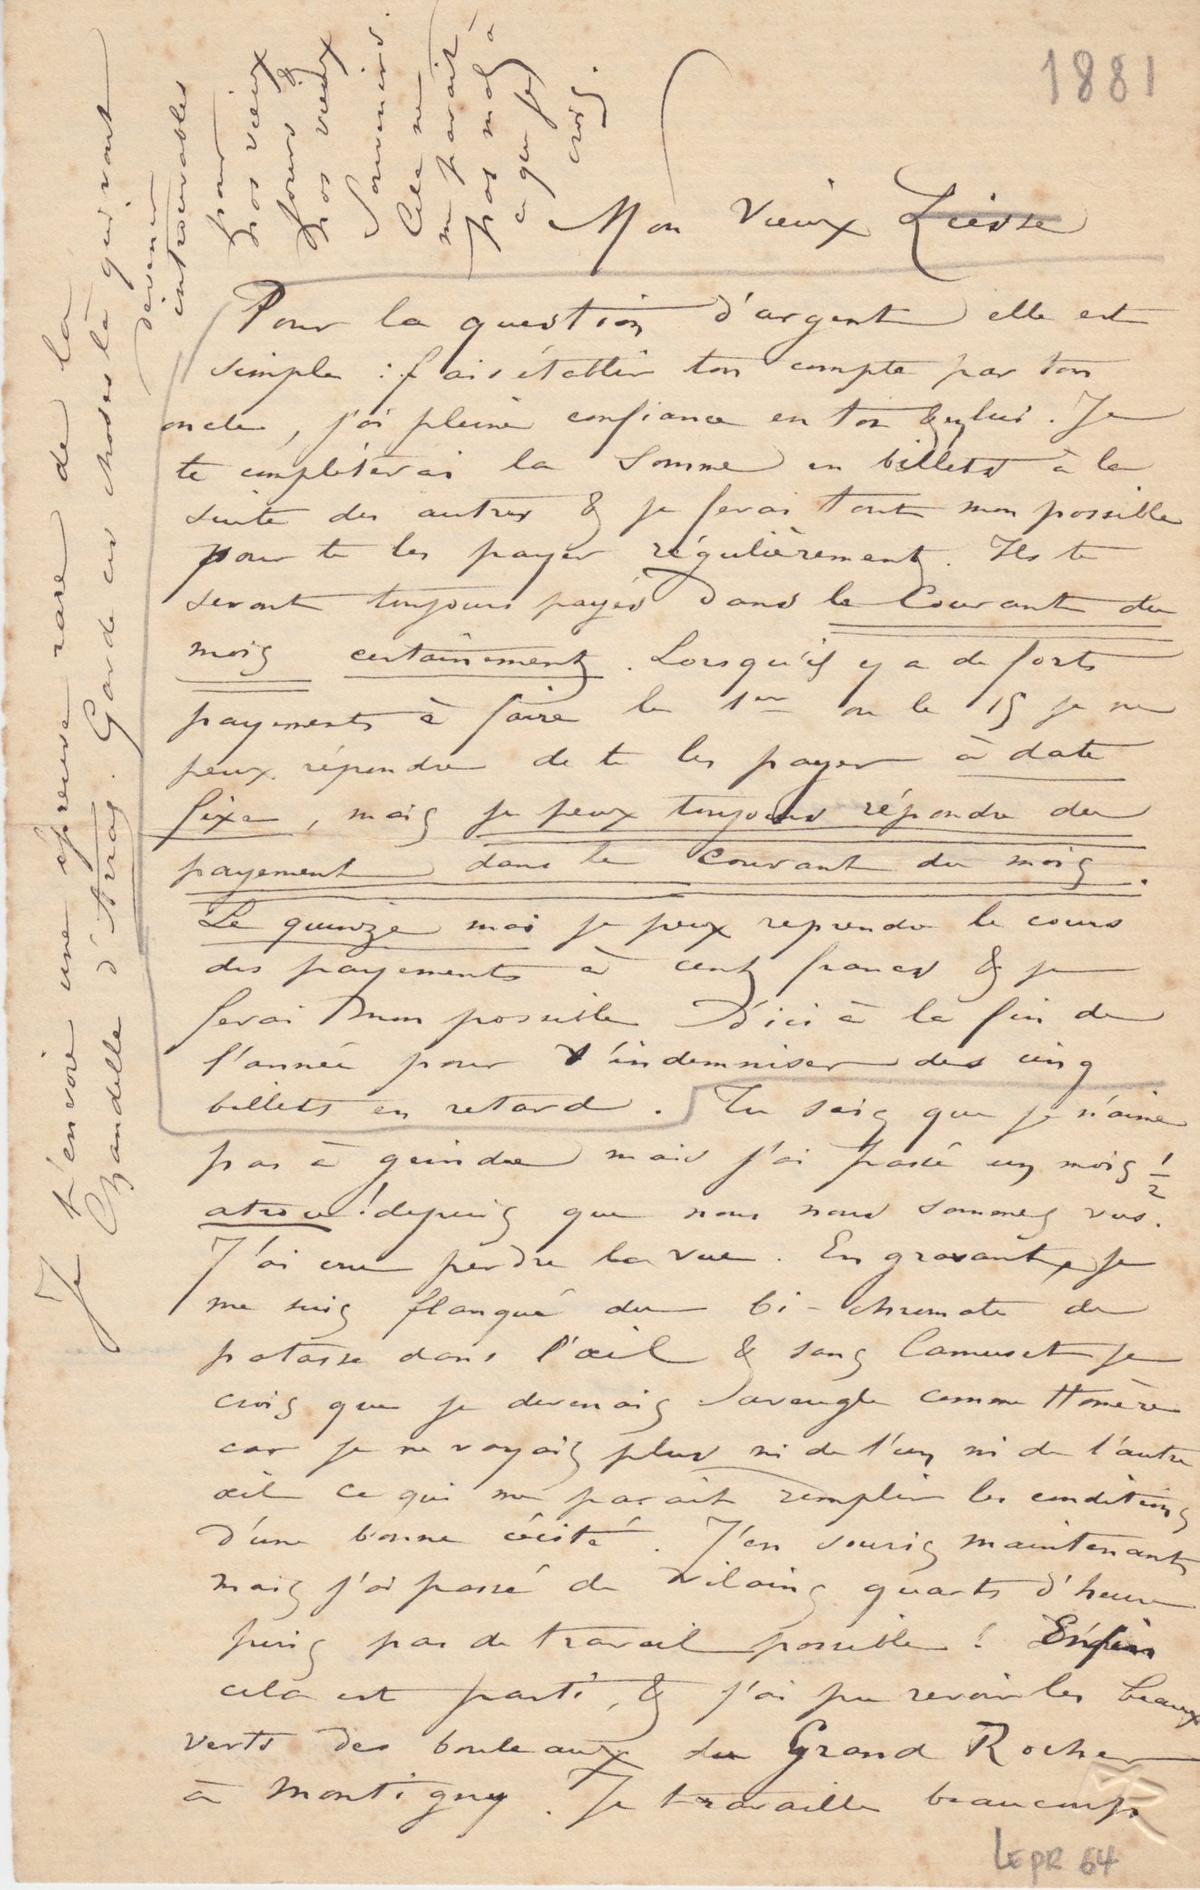 1881
Mon vieux Liesse
Pour la question d'argent elle est
simple : fais établir ton compte par ton
oncle, j'ai pleine confiance en toi & en lui. Je
te complèterai la somme en billets à la
suite des autres & je ferai tout mon possible
pour te les payer régulièrement. Ils te
seront toujours payés dans le Courant du
mois certainement. Lorsqu'il y a de forts
payements à faire le 1er ou le 15 je ne
peux répondre de te les payer à date
fixe, mais je peux toujours répondre du
payement dans le courant du mois.
Le quinze mai je peux reprendre le cours
des payements à cent francs & je
ferai mon possible d'ici à la fin de
l'année pour t'indemniser des cinq
billets en retard. Tu sais que je n'aime
pas à geindre mais j'ai passé un mois 1/2
atroce ! depuis que nous nous sommes vus.
J'ai cru perdre la vue. En gravant, je
me suis flanqué du bi-chromate de
potasse dans l'œil & sans Camuset je
crois que je devenais aveugle comme Homère
car je ne voyais plus ni de l'un ni de l'autre
œil ce qui me paraît remplir les conditions
d'une bonne cécité. J'en souris maintenant
mais j'ai passé de vilains quarts d'heure
puis pas de travail possible ! Enfin
cela est parti, & j'ai pu revoir les beaux
verts des bouleaux du Grand Rocher
à Montigny. Je travaille beaucoup
Je t'envoie une épreuve rare de la
Chandelle d'Arras. Garde ces choses là qui vont
devenir
introuvables
pour
nos vieux
jours &
nos vieux
Souvenirs.
Cela ne
me paraît
pas mal à
ce que je
crois.
LEPR 64